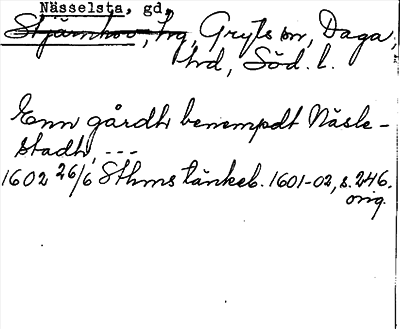 Nässelsta, gd,
Stjärnhov, hg, Gryts sn, Daga,
hd, Söd. l.
Enn gårdh benempdt Näsle-
stadh, ---
1602 26/6 Sthms tänkeb. 1601-02, s. 246.
orig.